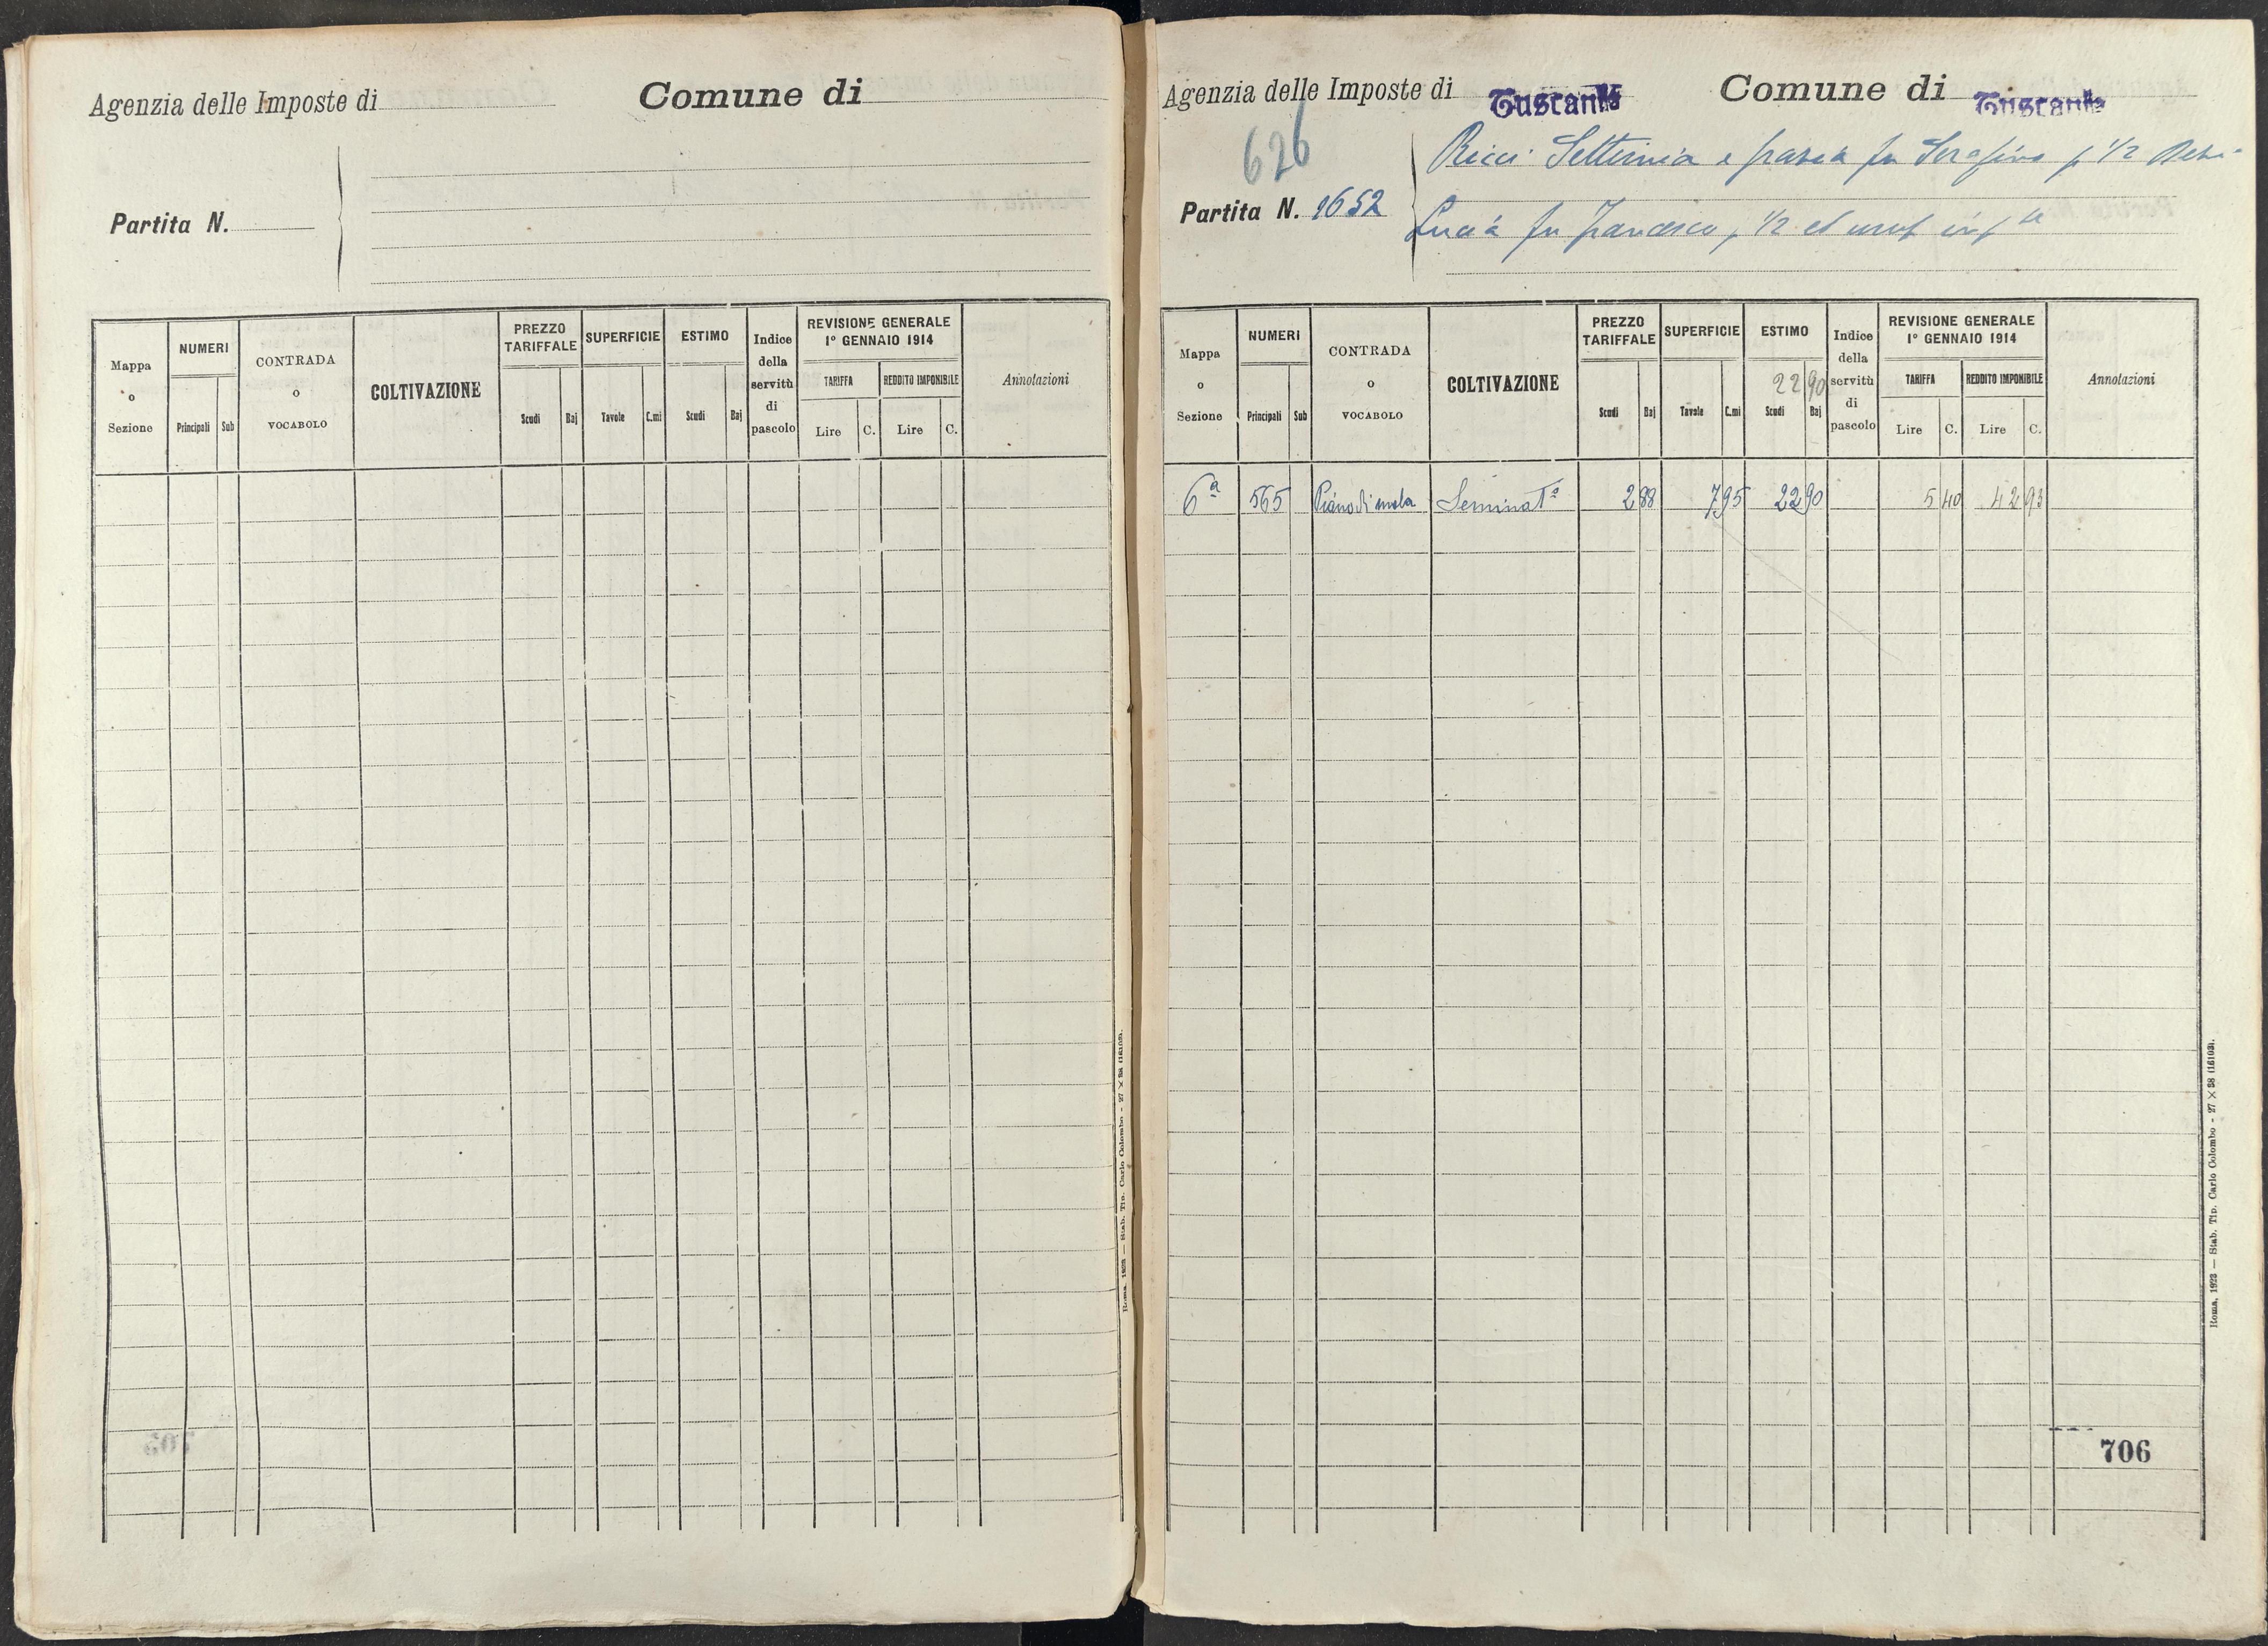 Agenzia delle Imposte di
Comune di
Partita N.
Mappa o Sezione
NUMERI
Principali
Sub
CONTRADA o VOCABOLO
COLTIVAZIONE
PREZZO TARIFFALE
Scudi
Baj
SUPERFICIE
Tavole
C.mi
ESTIMO
Scudi
Baj
Indice della servitù di pascolo
REVISIONE GENERALE
1° GENNAIO 1914
TARIFFA
Lire
C.
REDDITO IMPONIBILE
Lire
C.
Annotazioni
Roma, 1923 — Stab. Tip. Carlo Colombo - 27 × 38 (16103).
Agenzia delle Imposte di Tuscania
Comune di Tuscania
626
Partita N. 1652
Ricci Settimia e fu Serafino p 1/2
Lucia fu Francesco p 1/2 ed usuf
Mappa o Sezione
NUMERI
Principali
Sub
CONTRADA o VOCABOLO
COLTIVAZIONE
PREZZO TARIFFALE
Scudi
Baj
SUPERFICIE
Tavole
C.mi
ESTIMO
22 90
Scudi
Baj
Indice della servitù di pascolo
REVISIONE GENERALE
1° GENNAIO 1914
TARIFFA
Lire
C.
REDDITO IMPONIBILE
Lire
C.
Annotazioni
6ª 565 Piano di mola Seminatº 2 88 7 95 22 90 5 40 42 93
706
Roma, 1923 — Stab. Tip. Carlo Colombo - 27 × 38 (16103).